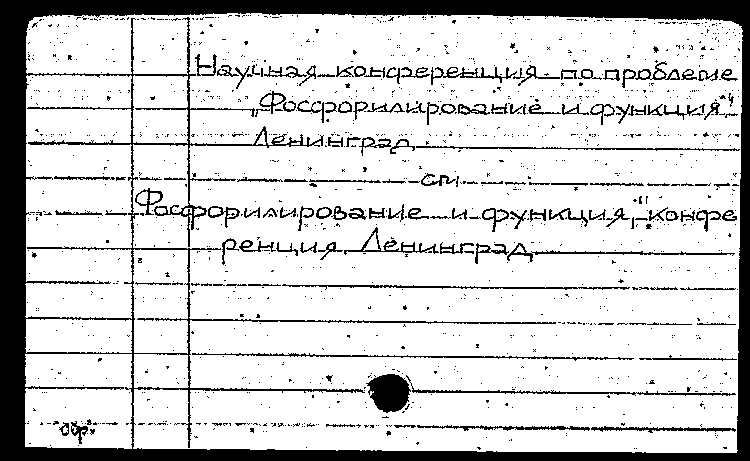 Научная конференция по проблеме
„Фосфорилирование и функция“
Ленинград.
см.
Фосфорилирование и функция,“ конфе
ренция. Ленинград.